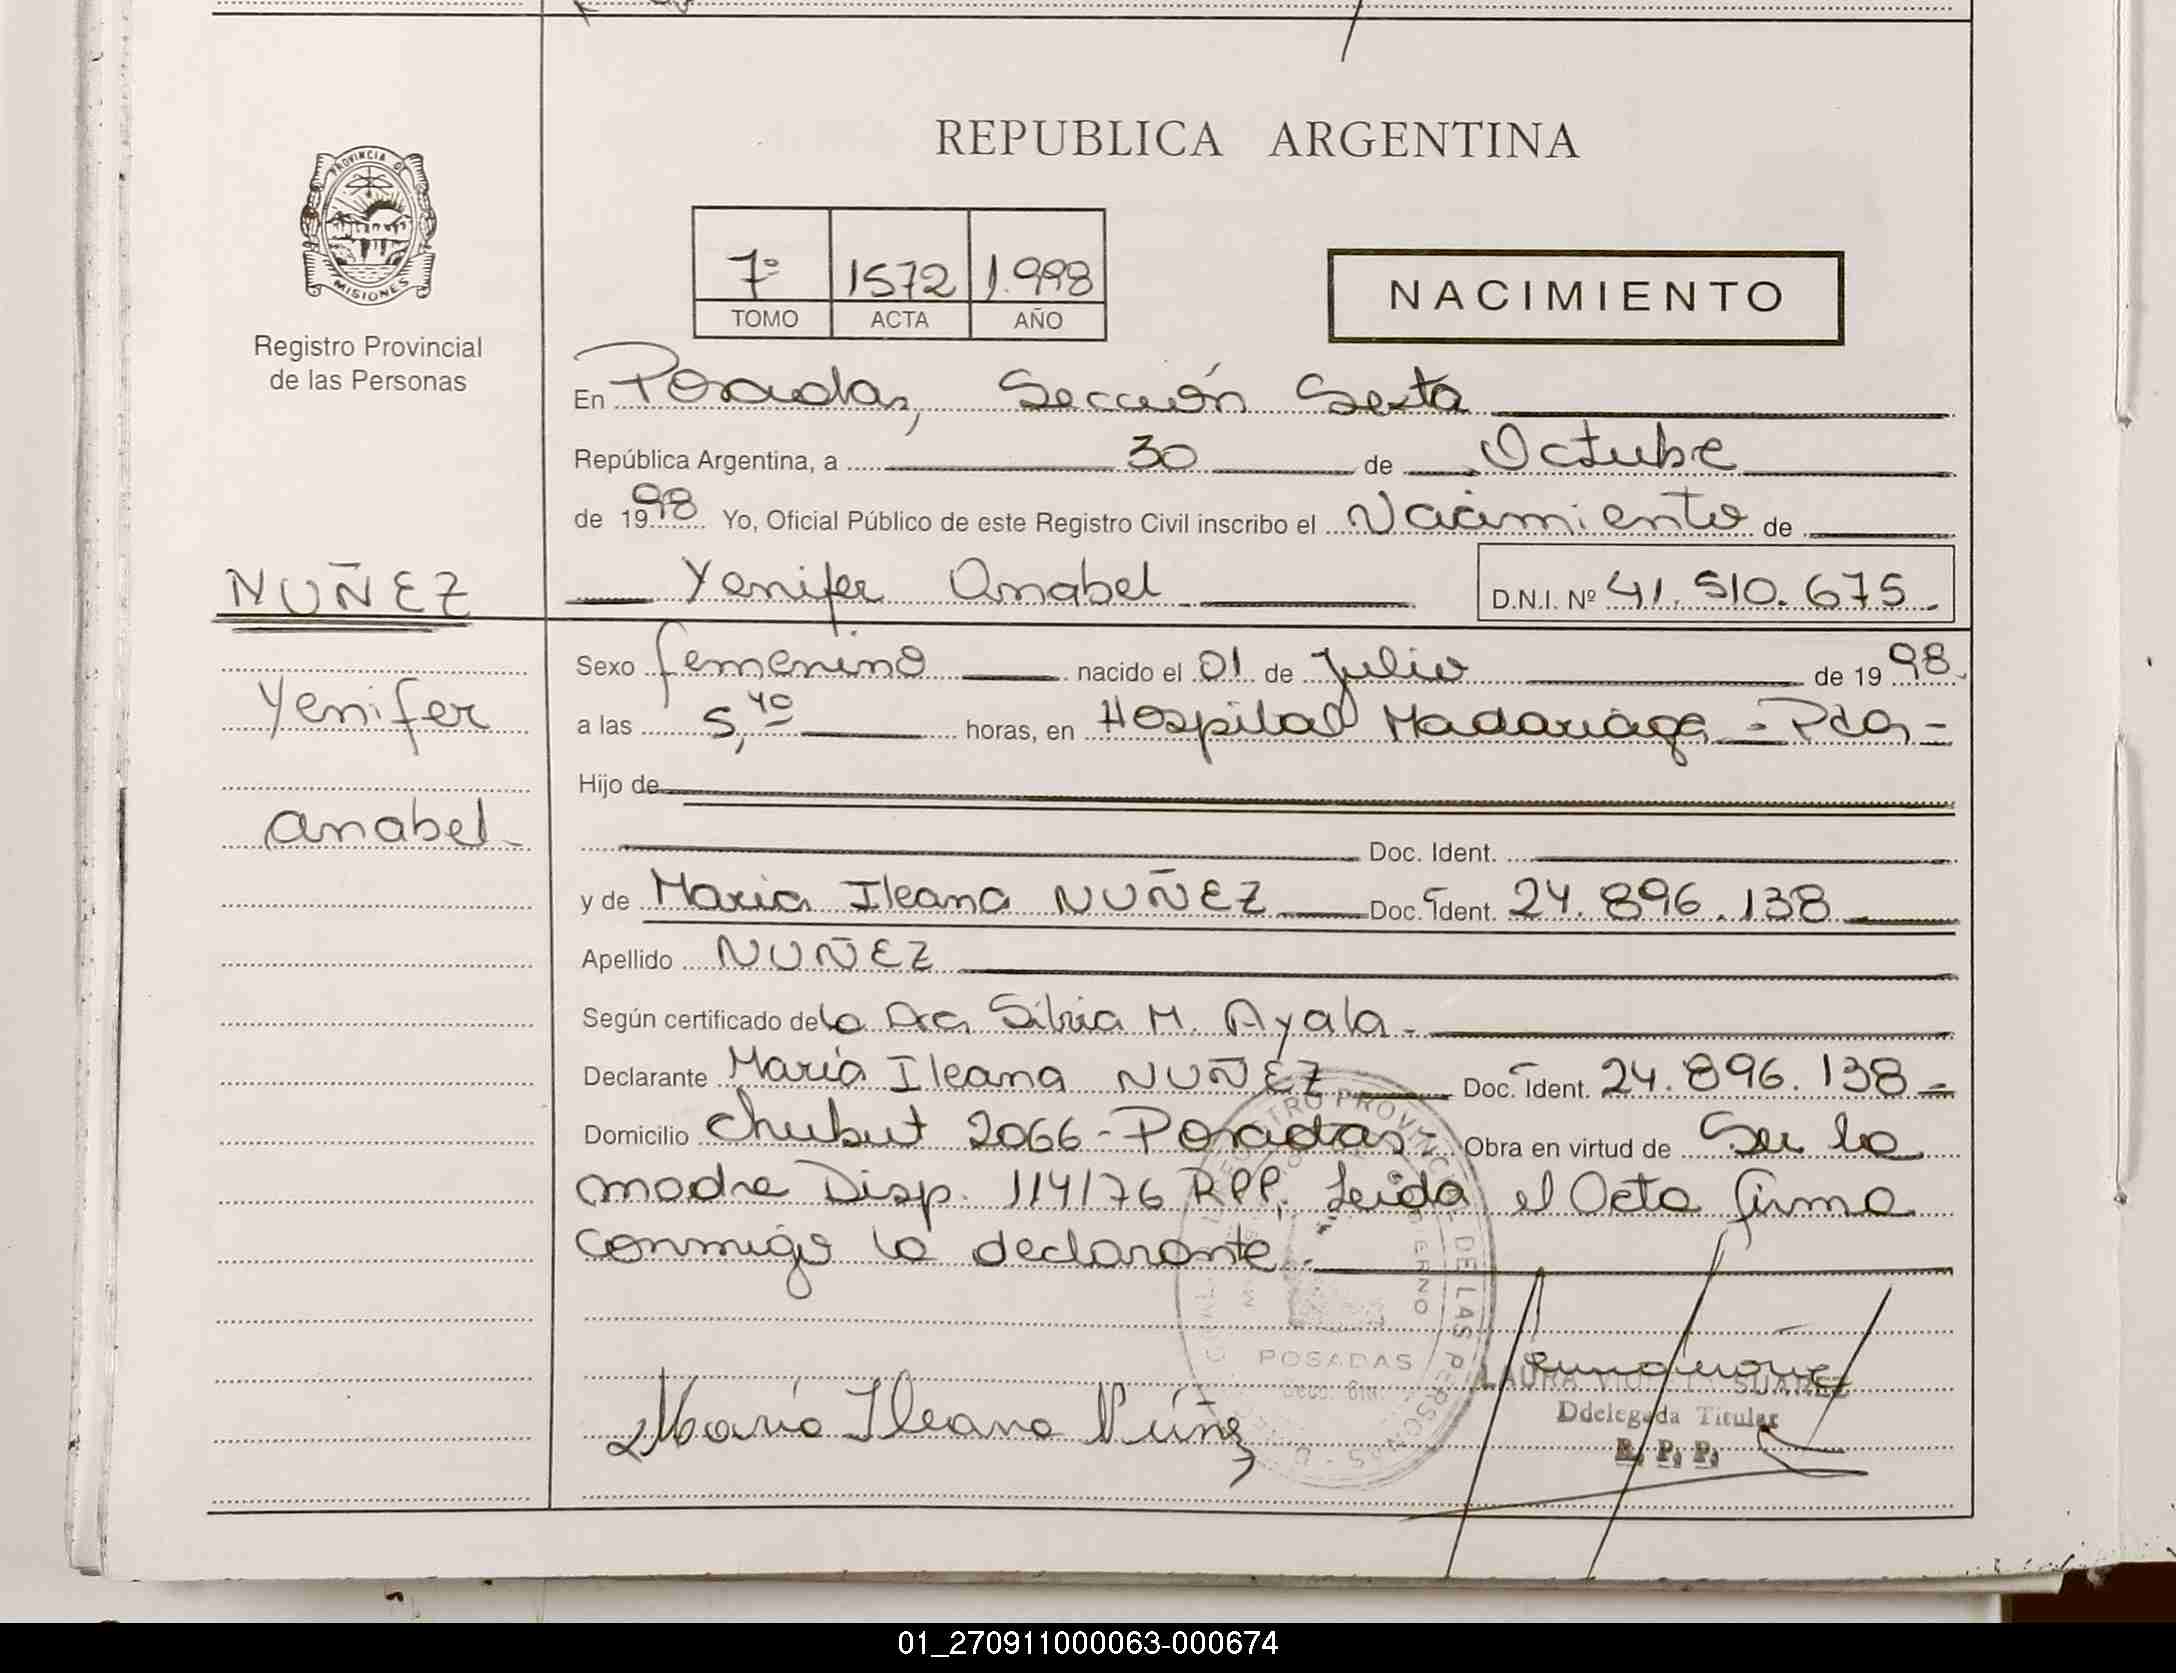 PROVINCIA DE
MISIONES
Registro Provincial
de las Personas
REPUBLICA ARGENTINA
7º 1572 1.998
TOMO ACTA AÑO
NACIMIENTO
En Posadas, Sección Sexta
República Argentina, a 30 de Octubre
de 1998 Yo, Oficial Público de este Registro Civil inscribo el Nacimiento de
Yenifer Anabel D.N.I. Nº 41.510.675.
NUÑEZ
Yenifer
Anabel
Sexo femenino nacido el 01 de Julio de 1998.
a las 5,40 horas, en Hospital Madariaga - Pdas -
Hijo de
Doc. Ident.
y de Maria Ileana NUÑEZ Doc. Ident. 24.896.138
Apellido NUÑEZ
Según certificado de la Dra Silvia M. Ayala -
Declarante María Ileana NUÑEZ Doc. Ident. 24.896.138 =
Domicilio Chubut 2066 - Posadas - Obra en virtud de Ser la
madre Disp. 114/76 RPP. Leída el Acta firma
conmigo la declarante.
REGISTRO PROVINCIAL DE LAS PERSONAS
POSADAS
María Ileana Núñez
LAURA SUAREZ
Ddelegada Titular
R. P. P.
01_270911000063-000674